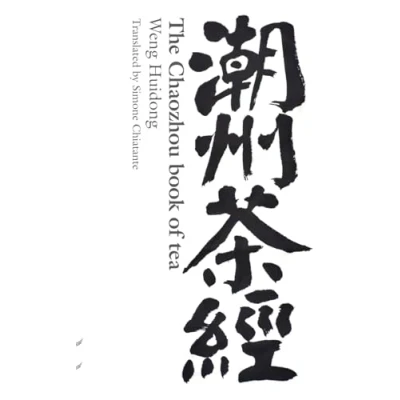 潮州茶經
The Chaozhou book of tea
Weng Huidong
Translated by Simone Chiatante